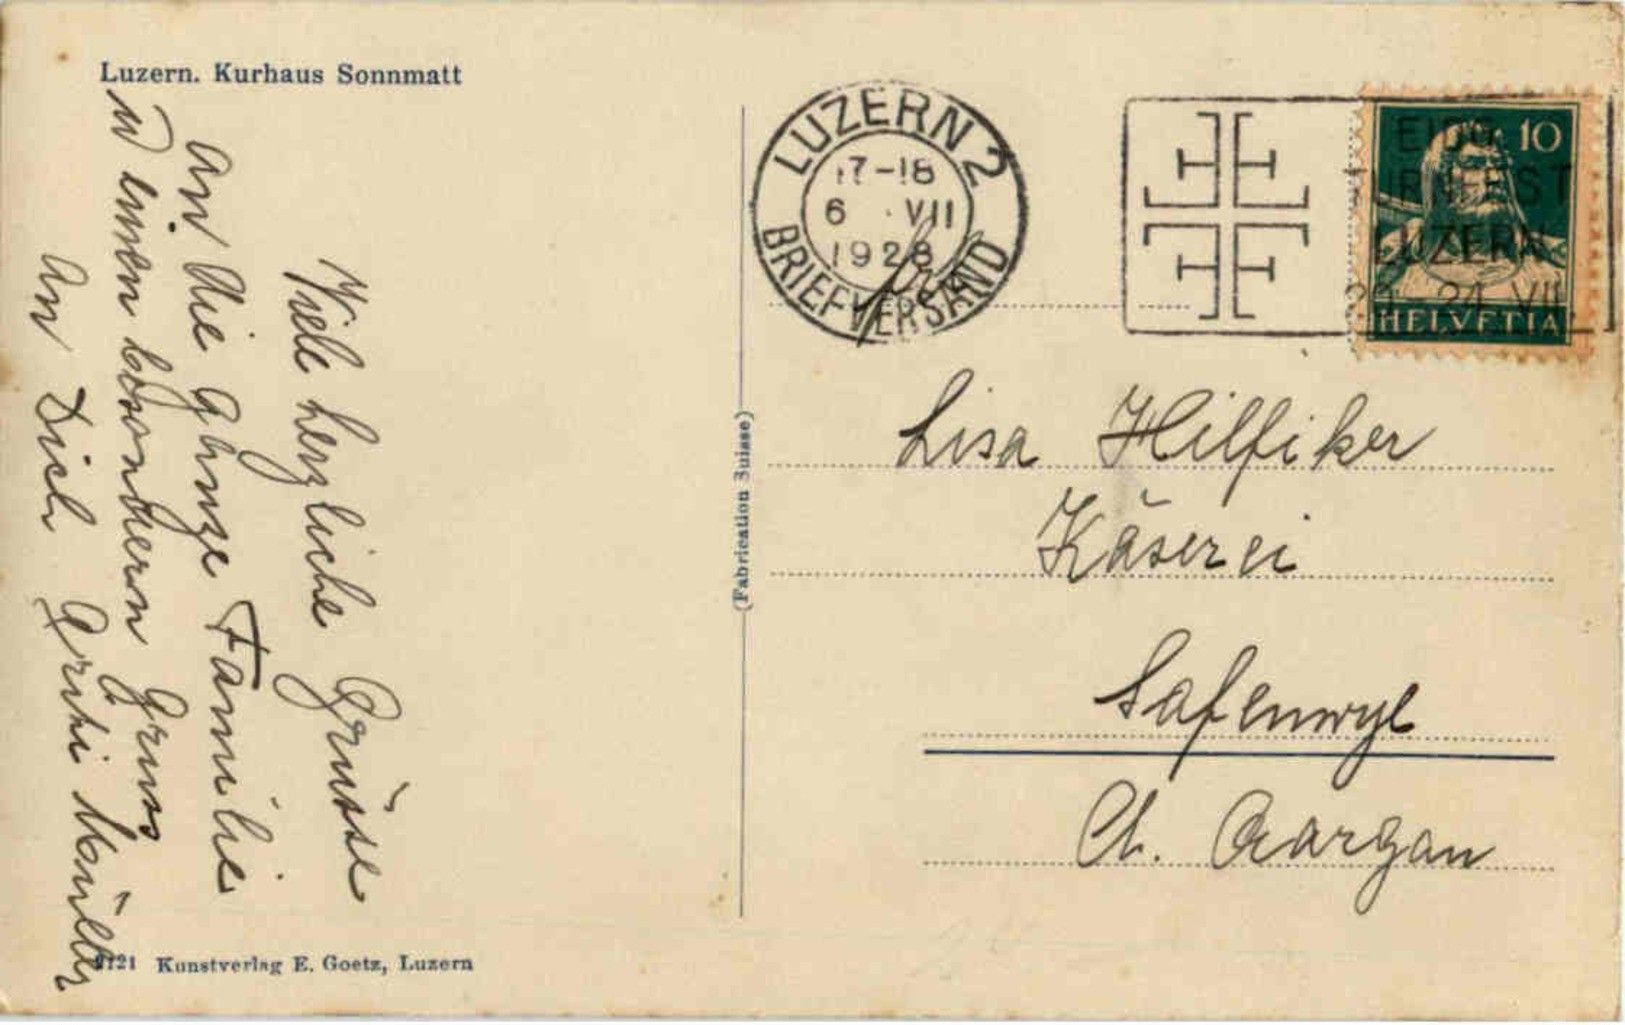 Luzern. Kurhaus Sonnmatt
Viele herzliche Grüsse
an die ganze Familie
u einen besondern Gruss
an Dich Griti Müller
9121 Kunstverlag E. Goetz, Luzern
(Fabrication Suisse)
LUZERN 2
17-18
6 VII
1928
BRIEFVERSAND
EIDG.
TURNFEST
LUZERN
20. 24. VII
10
HELVETIA
Lisa Hilfiker
Käserei
Safenwyl
Ct. Aargau